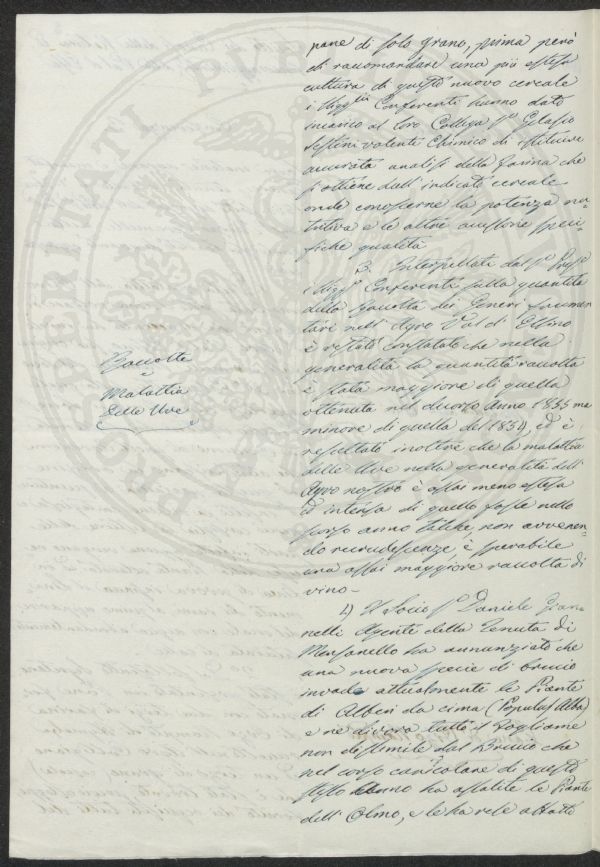 pane di solo grano, prima però
di raccomandare una più estesa
cultura di questo nuovo cereale
i Sigg.ri Conferenti hanno dato
incarico al loro Collega S.r Gelasio
Sestini valente Chimico di istituire
accurata analisi della farina che
si ottiene dall'indicato cereale
onde conoscerne la potenza nu-
tritiva e le altre sue speci-
fiche qualità
3. Interpellati dal S.r
i Sigg.ri Conferenti sulla quantità
della Raccolta dei Generi frumen-
tari nell'Agro Val di
è restato constatato che nella
generalità la quantità raccolta
è stata maggiore di quella
ottenuta nel decorso Anno 1855 ma
minore di quella del 1854, ed è
resultato inoltre che la malattia
delle Uve nella generalità dell'
Agro nostro è assai meno estesa
ed intensa di quello fosse nello
scorso anno talchè, non avvenen-
do recrudescenze, è sperabile
una assai maggiore raccolta di
vino.
4) Il Socio S.r Daniele Gian-
nelli Agente della Tenuta di
Mensanello ha annunziato che
una nuova specie di brucio
invade attualmente le Piante
di Alberi da cima (Populus Alba)
e ne divora tutto il fogliame
non dissimile dal Brucio che
nel corso canicolare di questo
stesso Anno ha assalite le Piante
dell'Olmo, e le ha rese affatto
Raccolte
e
Malattia
delle Uve
PROSPERITATI PVB